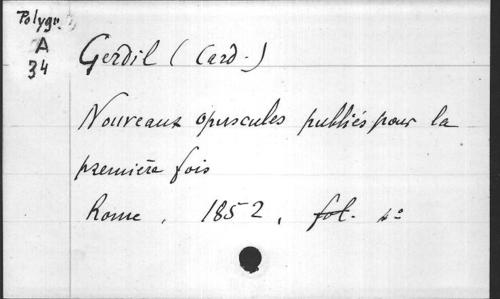 Polygr.
A
34
Gerdil (Card.)
Nouveaux opuscules publiés pour la
première fois
Rome, 1852, fol. 4°